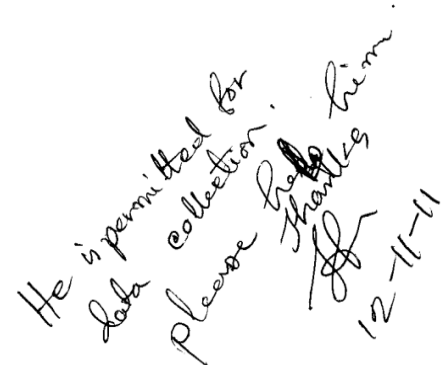 He is permitted for
data collection.
please help him
Thanks
12-11-11